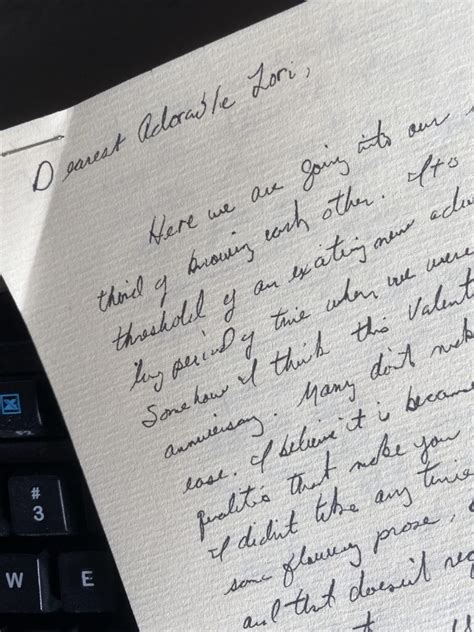 Dearest Adorable Lori,
Here we are going into our
third of knowing each other. It's
threshold of an exciting new adv
ing period of time when we were
Somehow I think this Valent
anniversary. Many don't mak
ease. I believe it is becaus
qualities that make you
I didn't take any time
some flowing prose,
and that doesn't req
#
3
W E